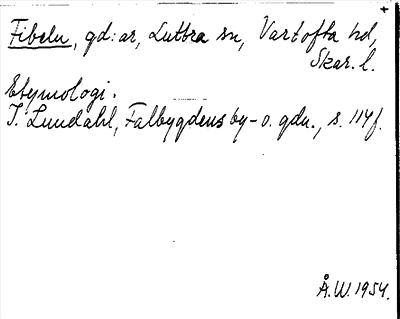 Fibeln, gd:ar, Luttra sn, Vartofta hd,
Skar. l.
Etymologi.
I. Lundahl, Falbygdens by- o. gdn., s. 114f.
Å.W. 1954.